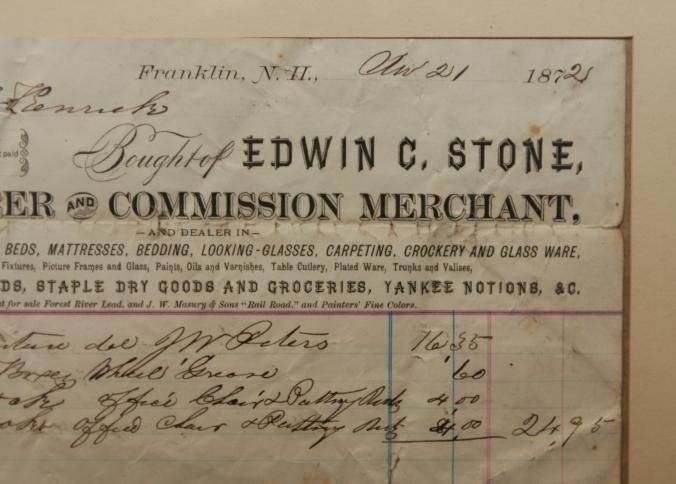 Franklin, N. H., Nov 21 1872
Kenrick
t paid
Bought of EDWIN C. STONE,
ER AND COMMISSION MERCHANT,
—AND DEALER IN—
BEDS, MATTRESSES, BEDDING, LOOKING-GLASSES, CARPETING, CROCKERY AND GLASS WARE,
Fixtures, Picture Frames and Glass, Paints, Oils and Varnishes, Table Cutlery, Plated Ware, Trunks and Valises,
DS, STAPLE DRY GOODS AND GROCERIES, YANKEE NOTIONS, &C.
t for sale Forest River Lead, and J. W. Masury & Sons "Rail Road," and Painters' Fine Colors.
iture del J W Peters 16 35
Boxes Wheel Grease 60
office Chair & Putting 4,00
office Chair & Putting 4,00 24,95